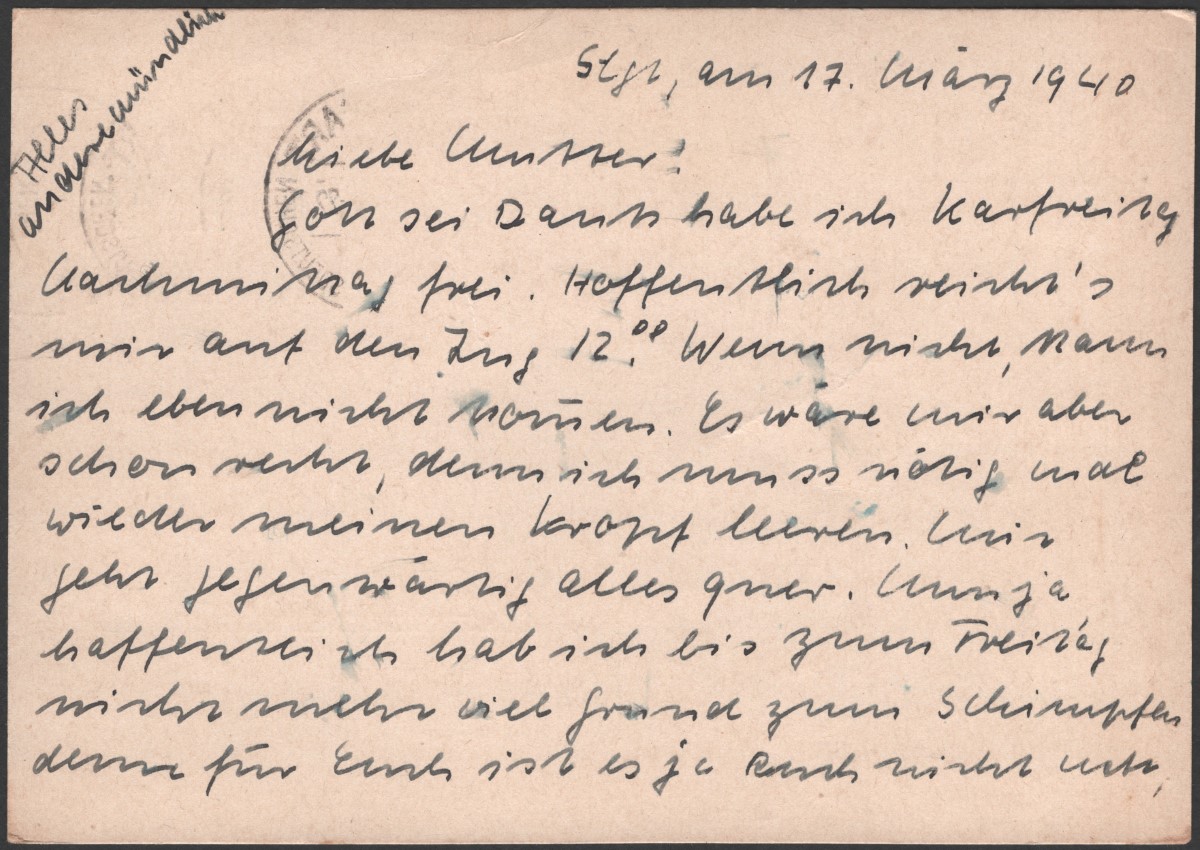 Alles
andere mündlich
Stgt, am 17. März 1940
Liebe Mutter!
Gott sei Dank habe ich Karfreitag
Nachmittag frei. Hoffentlich reicht's
mir auf den Zug 12.00 Wenn nicht, kann
ich eben nicht kom̄en. Es wäre mir aber
schon recht, denn ich muss nötig mal
wieder meinen Kropf leeren. Mir
geht gegenwärtig alles quer. Nun ja
hoffentlich hab ich bis zum Freitag
nicht mehr viel Grund zum Schimpfen
denn für Euch ist es ja auch nicht nett,